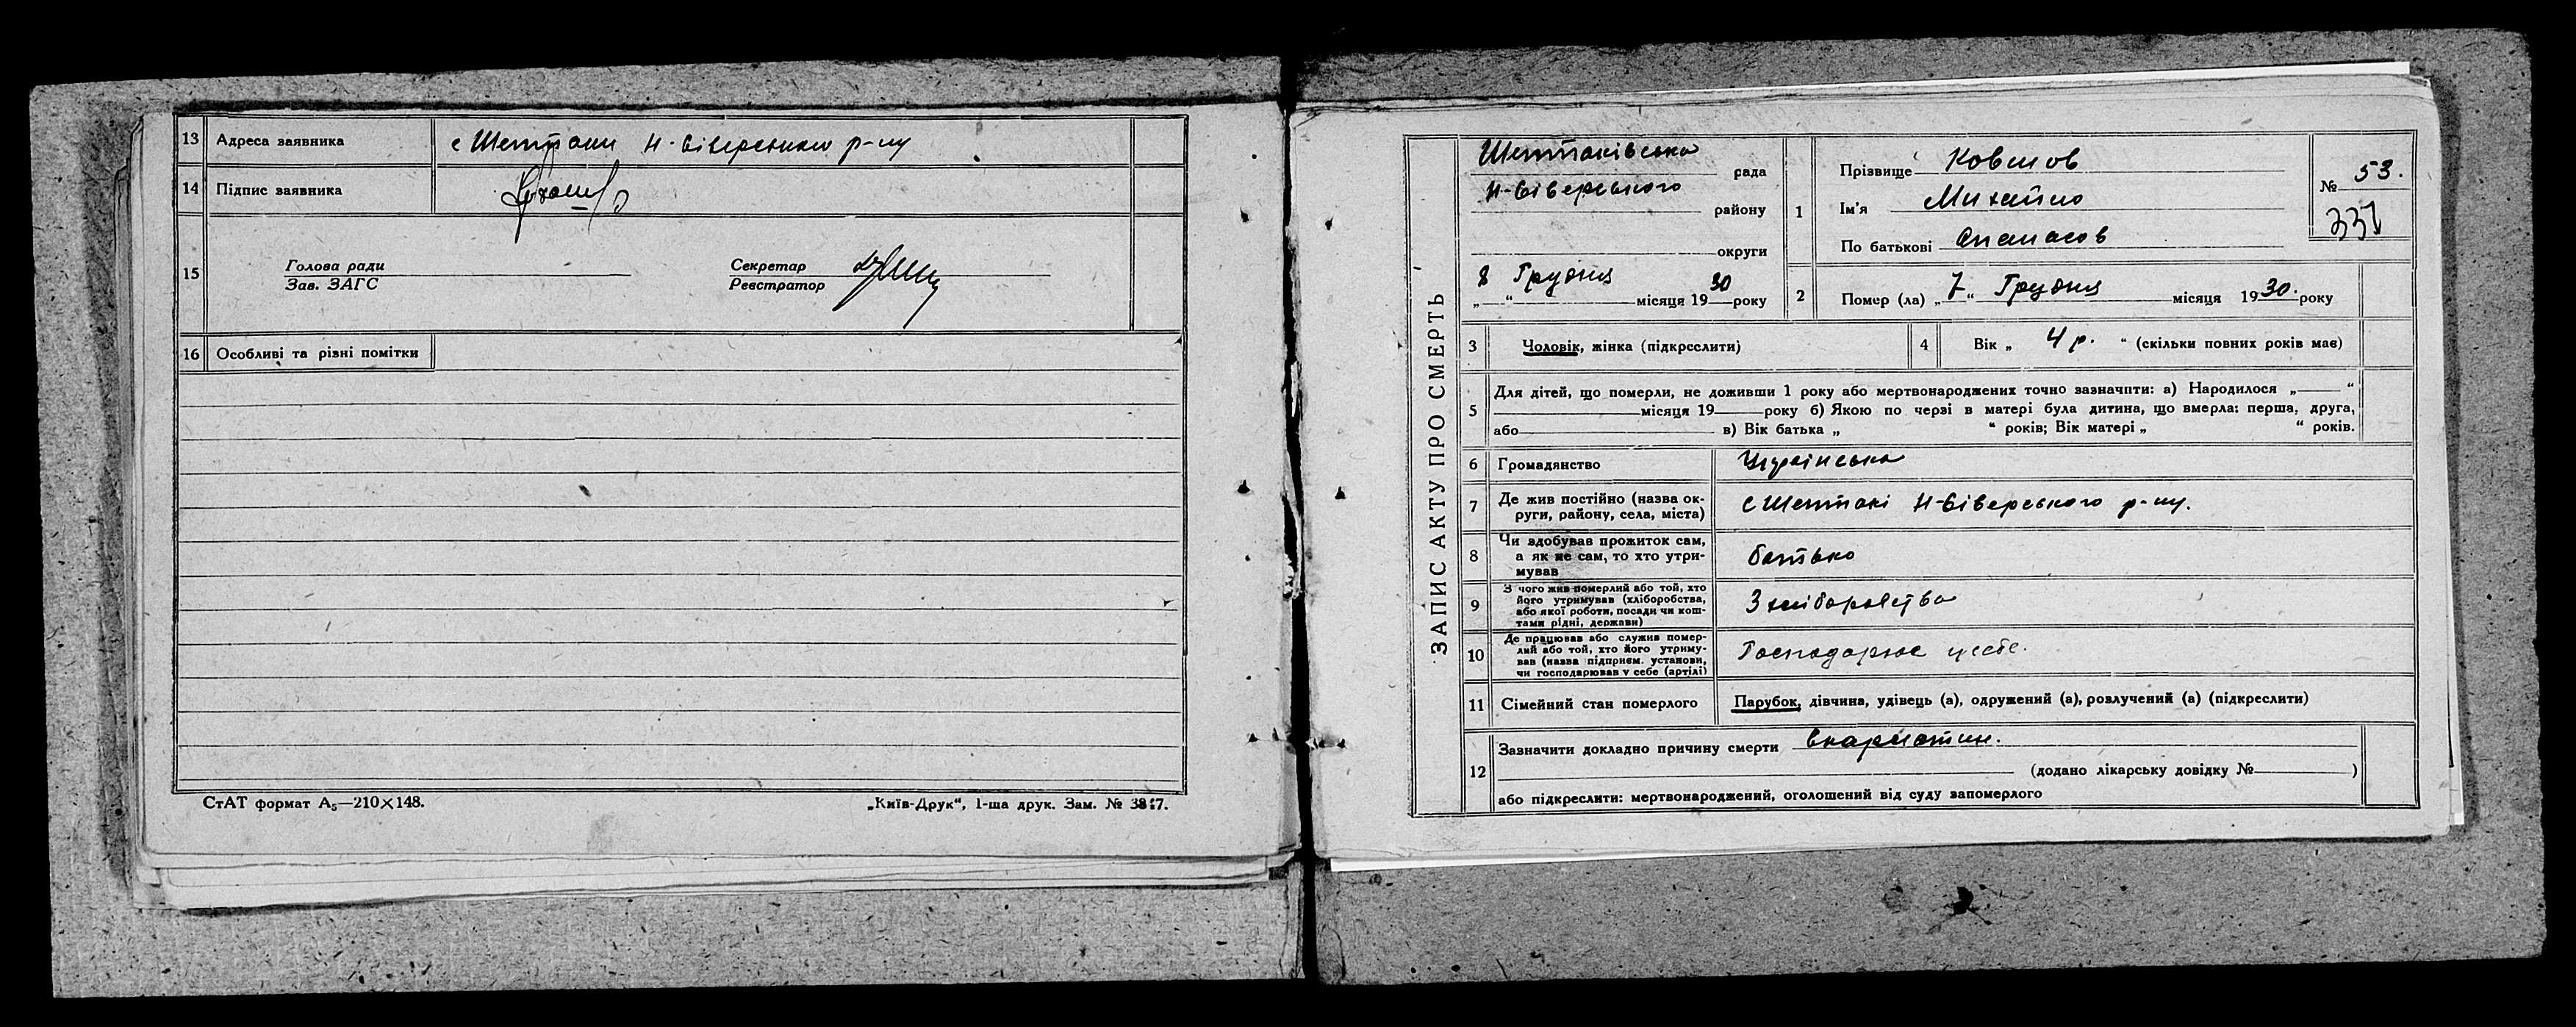 13 Адреса заявника с Шептаки Н-Сіверський р-ну
14 Підпис заявника
15 Голова ради
Зав. ЗАГС
Секретар
Реєстратор
16 Особливі та різні помітки
СтАТ формат А5—210×148.
„Київ-Друк“, 1-ша друк. Зам. № 3817.
ЗАПИС АКТУ ПРО СМЕРТЬ
Шептаківська рада
Н-Сіверського району
округи
„8“ Грудня місяця 1930 року
1 Прізвище Ковшов
Ім'я Михайло
По батькові Опанасов
№ 53.
331
2 Помер (ла) „7“ Грудня місяця 1930. року
3 Чоловік, жінка (підкреслити)
4 Вік „ 4 р. “ (скільки повних років має)
5 Для дітей, що померли, не доживши 1 року або мертвонароджених точно зазначити: а) Народилося „ “
місяця 19 року б) Якою по черзі в матері була дитина, що вмерла: перша, друга,
або в) Вік батька „ “ років; Вік матері „ “ років.
6 Громадянство Українська
7 Де жив постійно (назва ок-
руги, району, села, міста) с Шептакі Н-Сіверського р-ну.
8 Чи здобував прожиток сам,
а як не сам, то хто утри-
мував батько
9 З чого жив померлий або той, хто
його утримував (хліборобства,
або якої роботи, посади чи кош-
тами рідні, держави) З хліборобства
10 Де працював або служив помер-
лий або той, хто його утриму-
вав (назва підприєм. установи,
чи господарював у себе (артілі) Господарює у себе.
11 Сімейний стан померлого Парубок, дівчина, удівець (а), одружений (а), розлучений (а) (підкреслити)
12 Зазначити докладно причину смерти Скарлатин.
(додано лікарську довідку № )
або підкреслити: мертвонароджений, оголошений від суду запомерлого